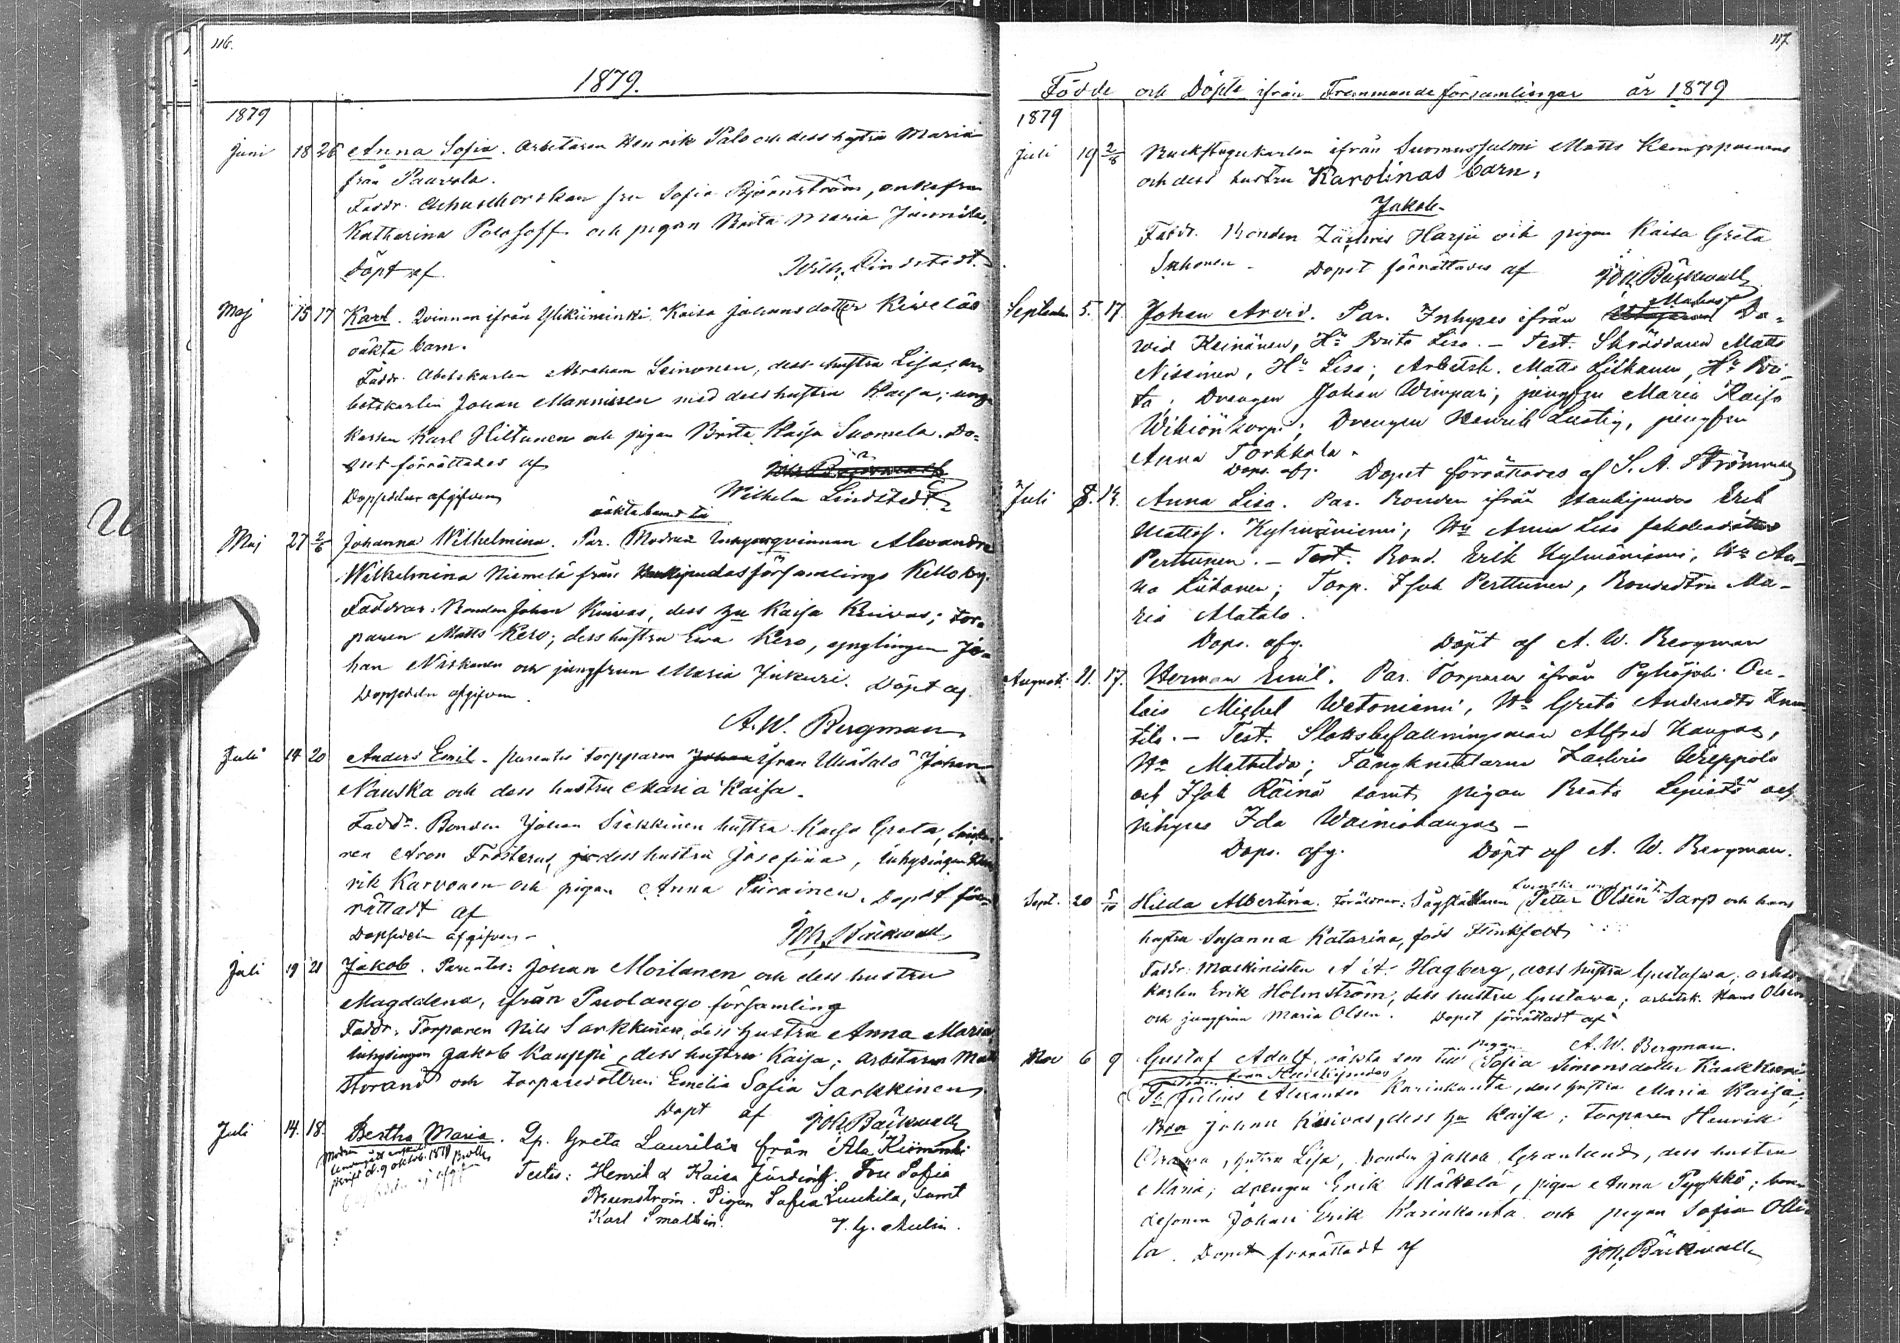 116.
1879.
1879
Juni 18 26 Anna Sofia. Arbetaren Henrik Palo och dess hustru Maria
från Paavola.
Faddr. fru Sofia Björnström, enkefru
Katharina och pigan Brita Maria
Döpt af Wilh. Lindstedt.
Maj 15 17 Karl. Qvinnan ifrån Ylikiiminki Kaisa Johansdotter Kiveläs
oäkta barn.
Faddr. Arbetskarlen Abraham Leinonen, dess hustru Lisa, ar-
betskarlen Johan Manninen med dess hustru Kaisa; ung-
karlen Karl Hiltunen och pigan Brita Kaisa Suomela. Do-
pet förrättades af
Wilhelm Lindstedt
Dopsedeln afgifven
Maj 27 2/6 Johanna Wilhelmina. Par. Modren Inhysesqvinnan Alexandra
Wilhelmina Niemelä från Haukipudas församlings Kello by.
Faddrar: Bonden Johan Kuivas, dess hu Kaisa Kuivas; tor-
paren Matts Kero; dess hustru Eva Kero, ynglingen Jo-
han Niskanen och jungfrun Maria Jukuri. Döpt af
Dopsedeln afgifven
A. W. Bergman
Juli 14 20 Anders Emil. parentes torpparen Johan ifrån Johan
Nauska och dess hustru Maria Kaisa.
Faddr. Bonden Johan Särkkinen hustru Kaisa Greta,
Aron Frosterus, dess hustru Josefina, Inhysingen Hen-
rik Karvonen och pigan Anna Piirainen. Dopet för-
rättadt af
Joh. Bäckwall
Dopsedeln afgifven
Juli 19 21 Jakob. Parentes: Johan Moilanen och dess hustru
Magdalena, ifrån Puolango församling
Faddr. Torparen Nils Sarkkinen, dess hustru Anna Maria
Inhysingen Jakob Kauppi, dess hustru Kaisa; arbetaren Matts
Morand och torparedottren Emelia Sofia Sarkkinen
Döpt af Joh. Bäckwall
Juli 14. 18. Bertha Maria. Qp. Greta Lauriläs från Ala Kiiminki
Testes: Henrik & Kaisa Fru Sofia
Brunström. Pigan Sofia Luukila, samt
Karl
117.
Födde och Döpte ifrån Främmande församlingar år 1879
1879
Juli 19 2/8 Backstugukarlen ifrån Suomussalmi Matts Kemppainens
och dess hustru Karolinas barn,
Jakob.
Faddr. Bonden Zachris Harju och pigan Kaisa Greta
Inkonen. Dopet förrättades af Joh. Bäckwall
September 5. 17. Johan Arvid. Par. Inhyses ifrån Muhos Da-
vid Keinänen, Hu Brita Lisa. – Test. Skräddaren Matts
Nissinen, Hu Lisa; Arbetsk. Matts Liikanen, Hu Bri-
ta; Drengen Johan Wimpari; jungfru Maria Kaisa
Drengen Henrik Lustig, jungfru
Anna Torkkola.
Dops. afg. Dopet förrättades af S. A. Strömmer
Juli 8. 14. Anna Lisa. Par. Bonden ifrån Haukipudas Erik
Mattss. Kylmäniemi; Hu Anna Lisa Jakobsdotter
Perttunen. – Test. Bond. Erik Kylmäniemi, Hu An-
na Liikanen; Torp. Isak Perttunen, Bondedtrn Ma-
ria Alatalo.
Dops. afg. Döpt af A. W. Bergman
Augusti 11. 17. Herman Emil. Par. Torparen ifrån Pyhäjoki Ou-
lais Michel Wetoniemi, Hu Greta Andersdtr
– Test. Slottsbefallningsman Alfred Kangas,
Hu Mathilda; Fångknektarne Zachris Greppila
och Isak Räinä samt pigan Beata Lepistö och
inhyses Ida Wainiokangas –
Dops. afg. Döpt af A. W. Bergman.
Sept. 20 5/10 Hilda Albertina. Föräldrar: Petter Olsen Sarp och hans
hustru Susanna Katarina, född Flinkfelt
Faddr: Maskinisten A. A. Hagberg, dess hustru Gustafva, arbets-
karlen Erik Holmström, dess hustru Gustava; arbetsk. Hans Olsen
och jungfrun Maria Olsen. Dopet förrättadt af
A. W. Bergman.
Nov 6 9 Gustaf Adolf, oäkta son till pigan Sofia Simonsdotter
från Haukipudas
Julius Alexander Karinkanta, dess hustru Maria Kaisa;
Bon Johan Kuivas, dess hu Kaisa; Torparen Henrik
hustru Lisa, bonden Jakob Granlund, dess hustru
Maria; drengen Erik Mäkelä, pigan Anna Pyykkö; bon-
desonen Johan Erik Karinkanta och pigan Sofia Olli-
la. Dopet förrättadt af Joh. Bäckwall